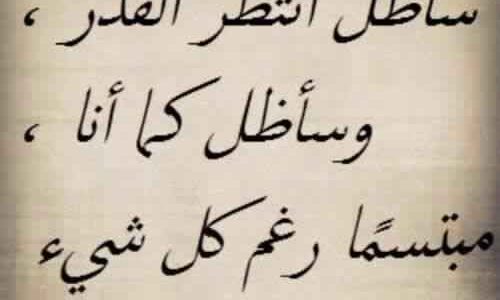 سأظل أنتظر القدر ،
وسأظل كما أنا ،
مبتسمًا رغم كل شيء